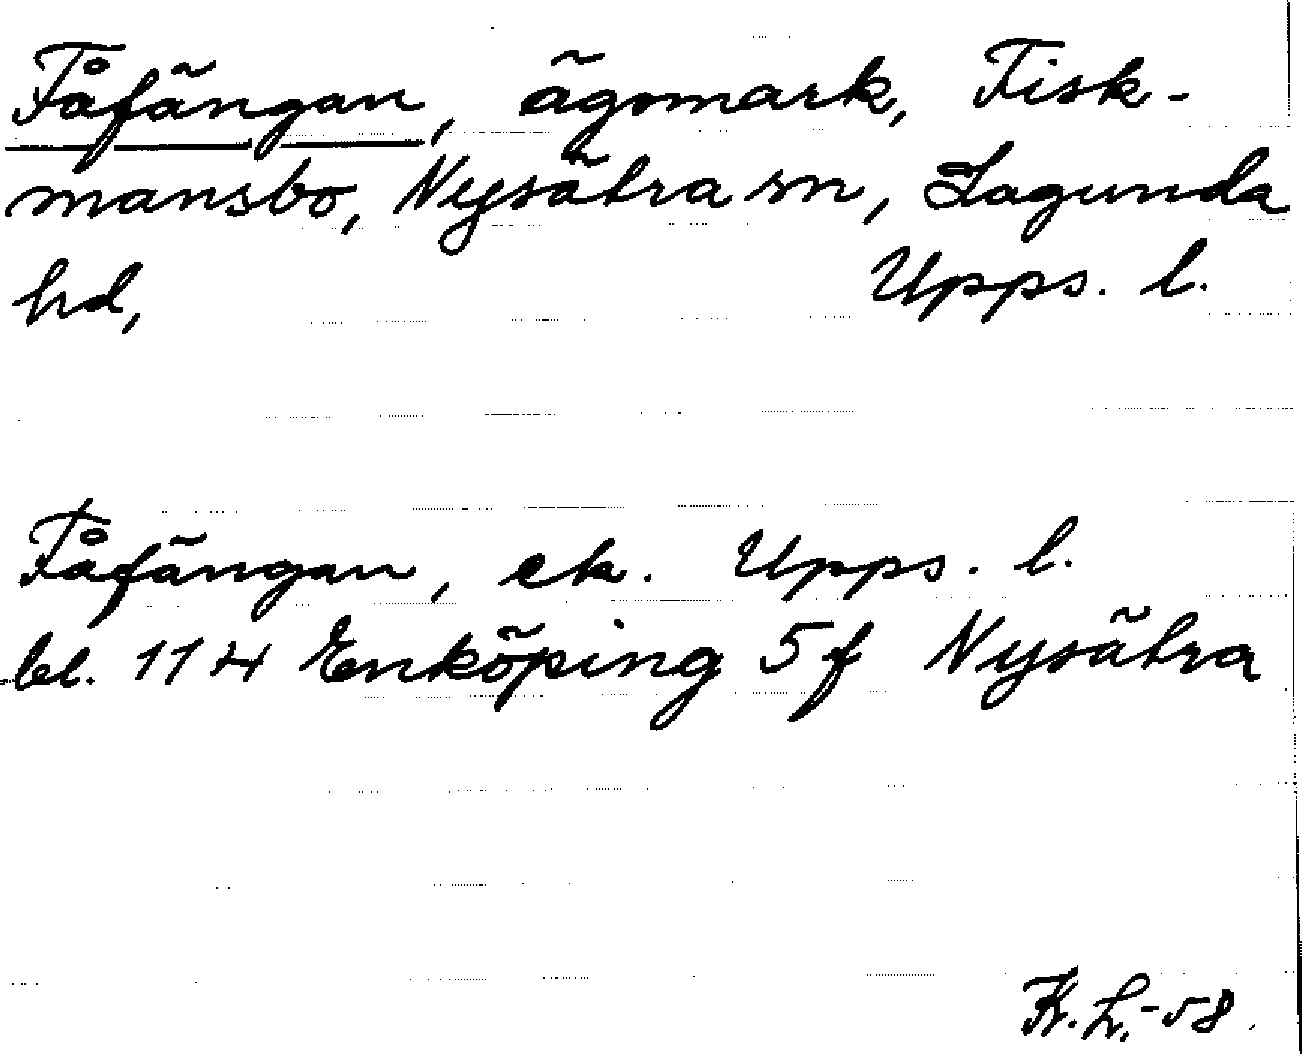 Fåfängan, ägomark, Fisk-
mansbo, Nysätra sn, Lagunda
hd, Upps. l.
Fåfängan, ek. Upps. l.
bl. 114 Enköping 5f Nysätra
K. L. -58.